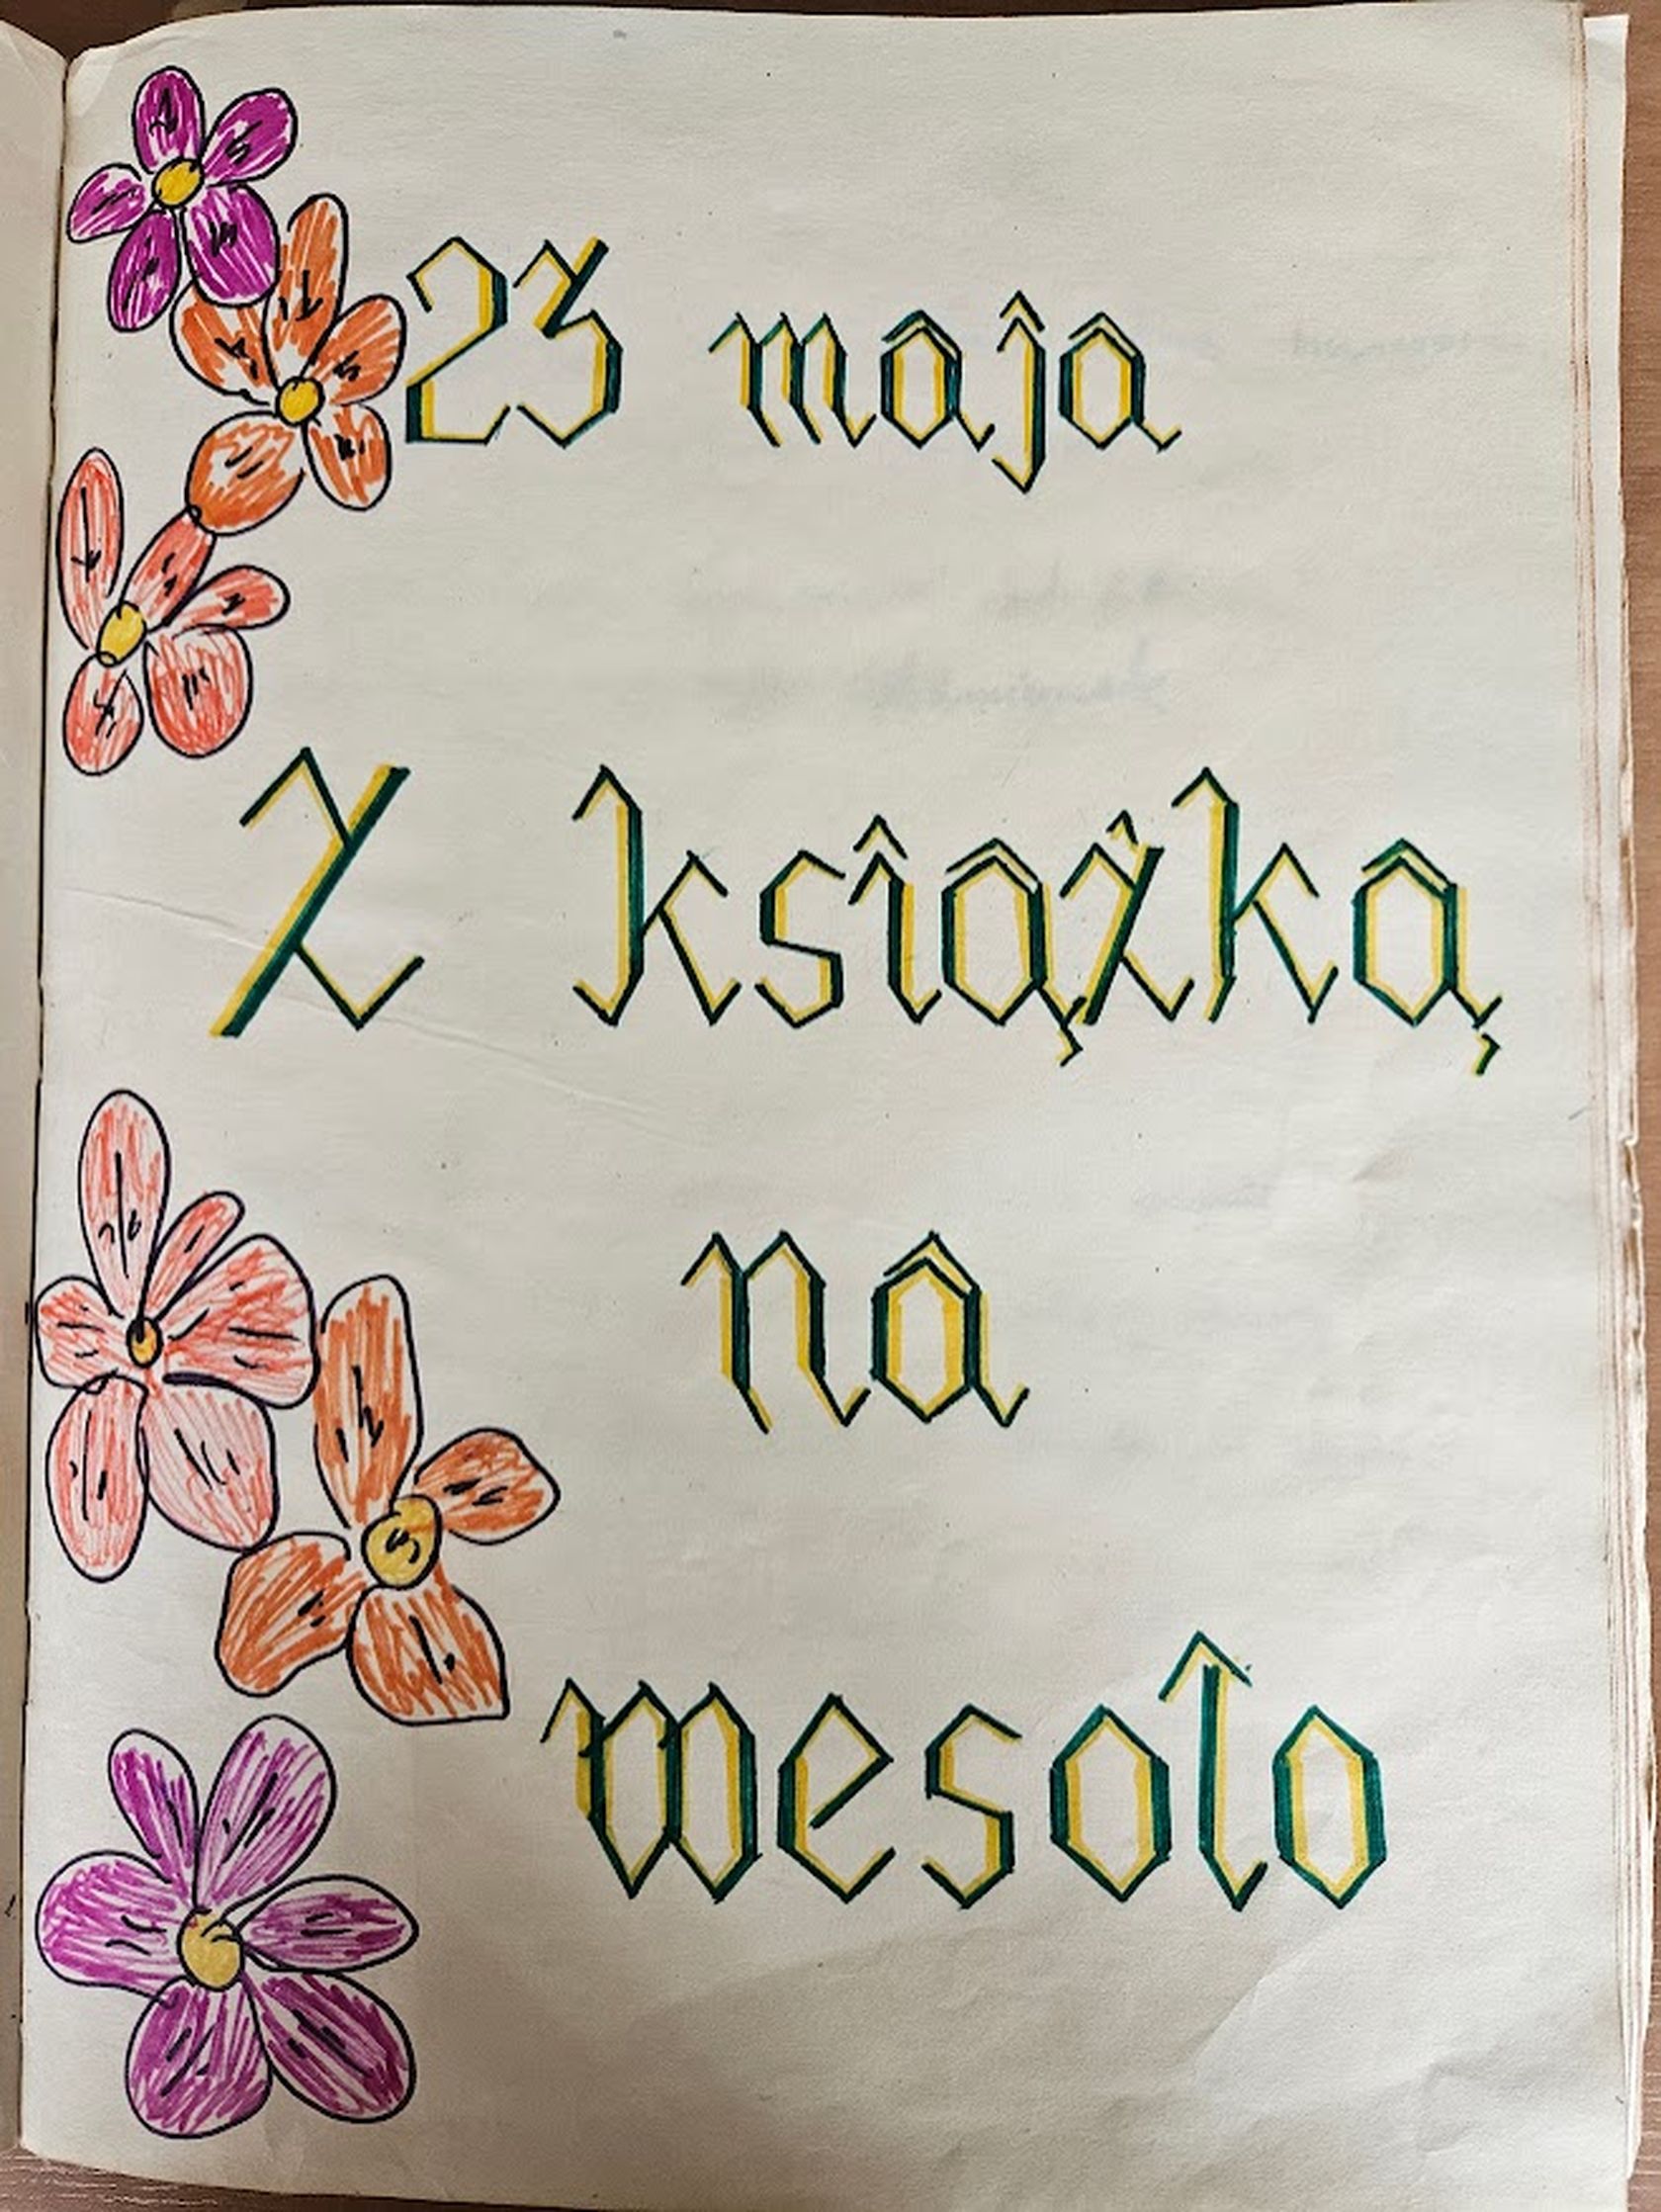 23 maja
Z książką
na
wesoło